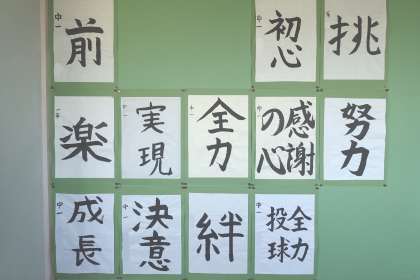 中一
前
中一
初心
挑
一年
楽
中一
実現
全力
中一
感謝の心
努力
中一
成長
中一
決意
絆
中一
全力投球